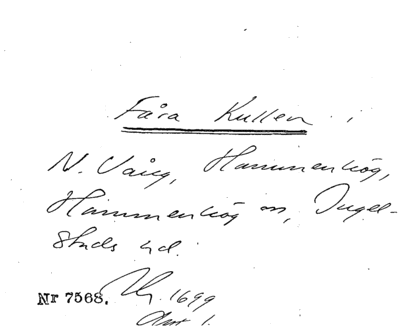 Fåra Kullen
N. Vång, Hammenhög,
Hammenhög sn, Ingel-
stads hd.
Nr 7568. 1699